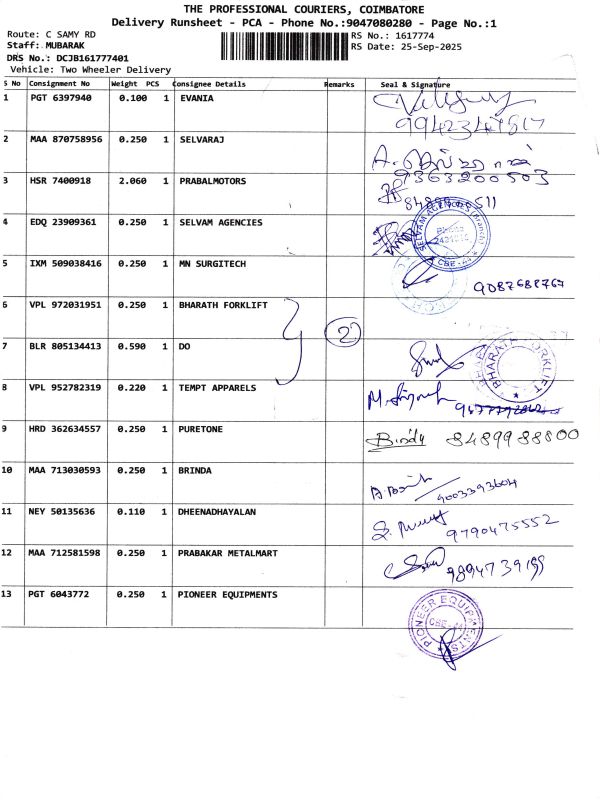 THE PROFESSIONAL COURIERS, COIMBATORE
Delivery Runsheet - PCA - Phone No.:9047080280 - Page No.:1
Route: C SAMY RD
RS No.: 1617774
Staff: MUBARAK
RS Date: 25-Sep-2025
DRS No.: DCJB161777401
Vehicle: Two Wheeler Delivery
S No Consignment No Weight PCS Consignee Details Remarks Seal & Signature
1 PGT 6397940 0.100 1 EVANIA
2 MAA 870758956 0.250 1 SELVARAJ
9363200503
3 HSR 7400918 2.060 1 PRABALMOTORS
4 EDQ 23909361 0.250 1 SELVAM AGENCIES
SELVAM AGENCIES
CBE-44
5 IXM 509038416 0.250 1 MN SURGITECH
9087688767
6 VPL 972031951 0.250 1 BHARATH FORKLIFT
2
7 BLR 805134413 0.590 1 DO
BHARATH FORKLIFT
8 VPL 952782319 0.220 1 TEMPT APPARELS
9 HRD 362634557 0.250 1 PURETONE
Bindu 8489988800
10 MAA 713030593 0.250 1 BRINDA
9003393604
11 NEY 50135636 0.110 1 DHEENADHAYALAN
9790475552
12 MAA 712581598 0.250 1 PRABAKAR METALMART
13 PGT 6043772 0.250 1 PIONEER EQUIPMENTS
PIONEER EQUIPMENTS
CBE-44